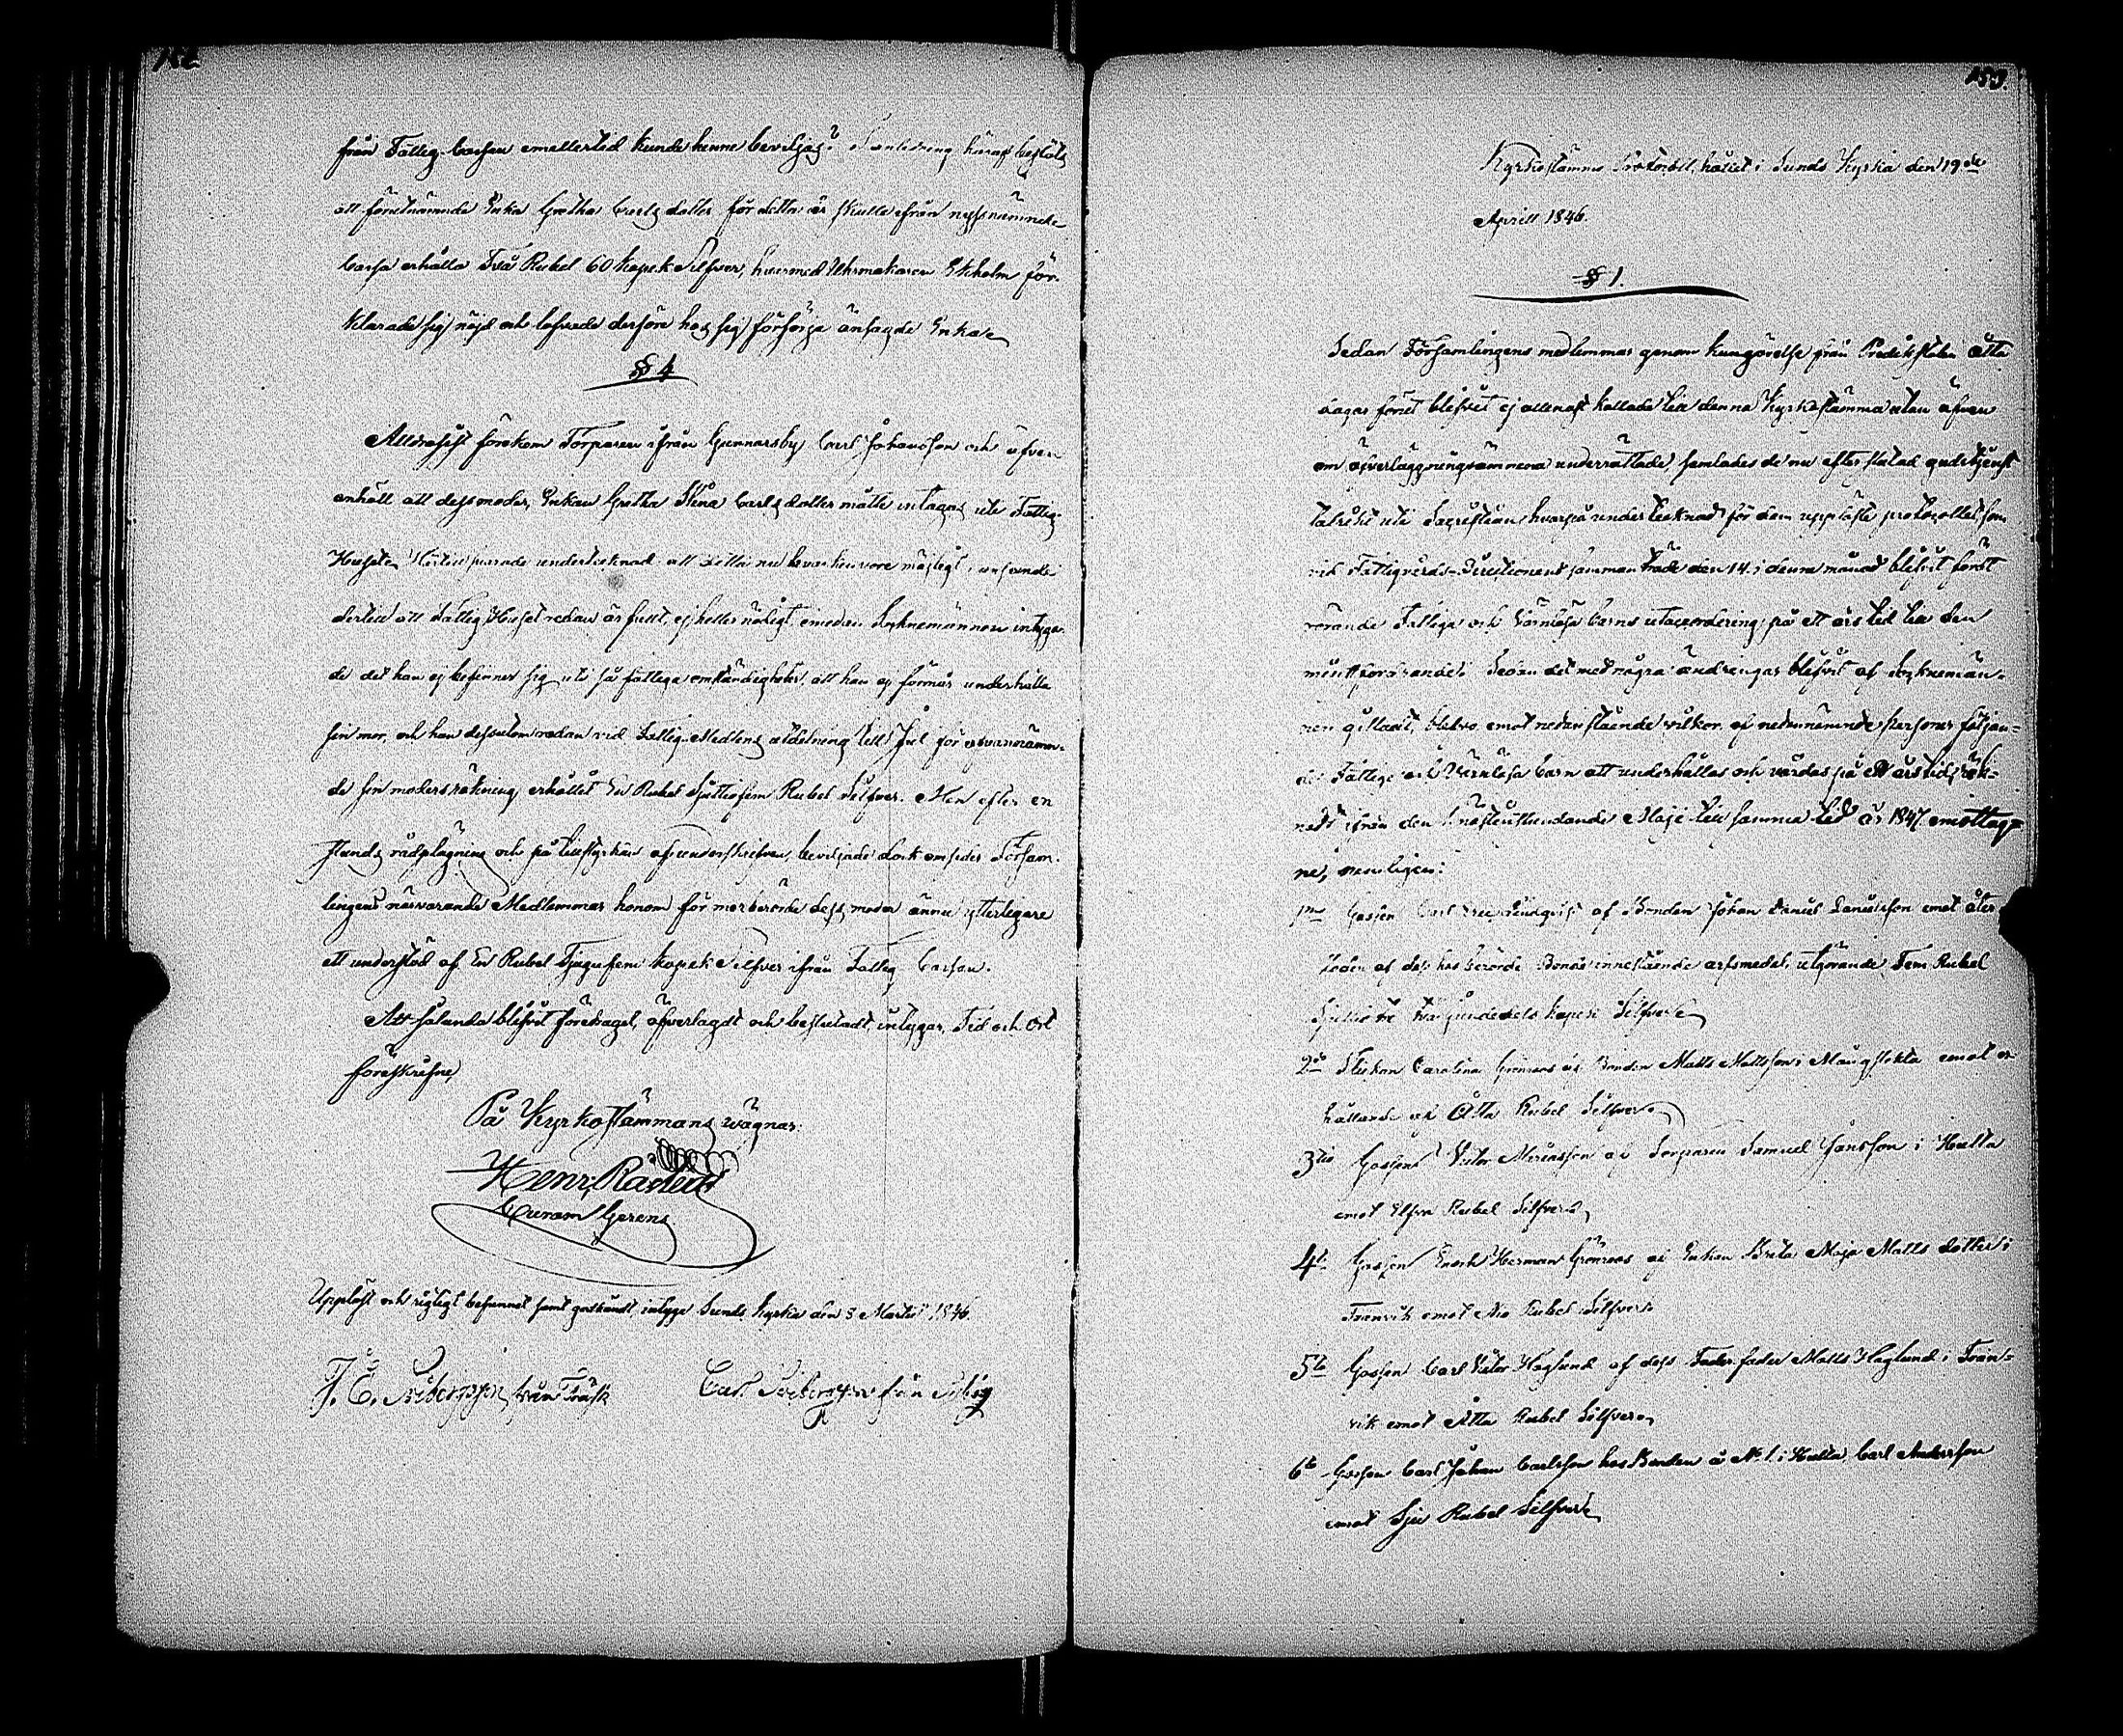 152.
från Fattig-Cassan emellertid kunde henne beviljas? I anledning häraf beslöts
att förenämnde Enka Gretha Carls dotter för detta år skulle ifrån nyssnämnde
Cassa erhålla Två Rubel 60 kopek Silfver, hvarmed Uhrmakaren Ekholm för-
klarade sig nöjd och lofvade derföre hos sig försörja änsagde Enka
§ 4
Alldrasist förekom Torparen ifrån Gunnarsby Carl Johansson och äfven
anhöll att dess moder, Enkan Gretha Stina Carls dotter måtte intagas uti Fattig-
Huset. Härtill svarade undertecknad att detta nu hvarken vore möjligt, i anseende
dertill att Fattig Huset redan är fullt, ej heller nödigt, emedan Socknemännen intyga-
de det han ej befinner sig uti så fattiga omständigheter, att han ej förmår underhålla
sin mor, och han dessutom redan vid Fattig-Medlens utdelning till Jul för ofvannämn-
de sin moders räkning erhållit En Rubel Sjuttiofem Rubel Silfver. Men efter en
stunds rådplägning och på tillstyrkan af underskrifven, beviljade dock omsider Försam-
lingens närvarande Medlemmar honom för merberörde dess moder ännu ytterligare
ett understöd af En Rubel Tjugufem kopek Silfver ifrån Fattig Cassan.
Att sålunda blifvit föredraget, öfverlagdt och beslutadt, intygar, Tid och Ort
föreskrefne,
På Kyrkostämmans vägnar:
Henr. Råsted
Curam Gerens
Uppläst och rigtigt befunnet samt godkändt, intyga Sunds Kyrka den 8 Martii 1846.
J. E. Sibergsson från Träsk Carl Sibergsson från Siby
153.
Kyrkostämmo Protocoll, hållet i Sunds Kyrka den 19de
Aprill 1846.
§ 1.
Sedan Församlingens medlemmar genom kungörelse från Predikstolen åtta
dagar förut blifvit ej allenast kallade till denna Kyrkostämma utan äfven
om öfverläggningsämnena underrättade, samlades de nu efter slutad gudstjenst
talrikt uti Sacristian, hvarpå undertecknad för dem uppläste protocollet, som
vid Fattigvårds-Directionens sammanträde den 14 i denna månad blifvit fördt
rörande Fattiga och Värnlösa barns utaccordering på ett års tid till den
minstfordrande. Sedan det med några ändringar blifvit af Socknemän-
nen gilladt, blefvo emot nedanstående vilkor, af nedannämnde personer följan-
de Fattige och Värnlösa barn att underhållas och vårdas på ett års tid, räk-
nadt ifrån den 1 nästinstundande Maji till samma tid år 1847 emottag-
ne, nemligen:
1mo Gossen Carl Lindqvist af Bonden Johan Daniel Danielsson emot åter-
stoden af dess hos berörde Bonde innestående arfsmedel, utgörande Fem Rubel
Sjuttio tre kopek Silfver
2do Flickan Carolina Grönroos af Bonden Matts Mattsson i Mångstekta emot er-
hållande af Åtta Rubel Silfver.
3tio Gossen Victor Mariasson af Torparen Samuel Jansson i Hulta
emot Elfva Rubel Silfver,
4to Gossen Enoch Herman Grönroos af Enkan Brita Maja Matts dotter i
Tranvik emot Nio Rubel Silfver.
5to Gossen Carl Victor Haglund af dess Faderfader Matts Haglund i Tran-
vik emot Åtta Rubel Silfver,
6to Gossen Carl Johan Carlsson hos Bonden å No 1. i Hulta Carl Andersson
emot Sju Rubel Silfver,